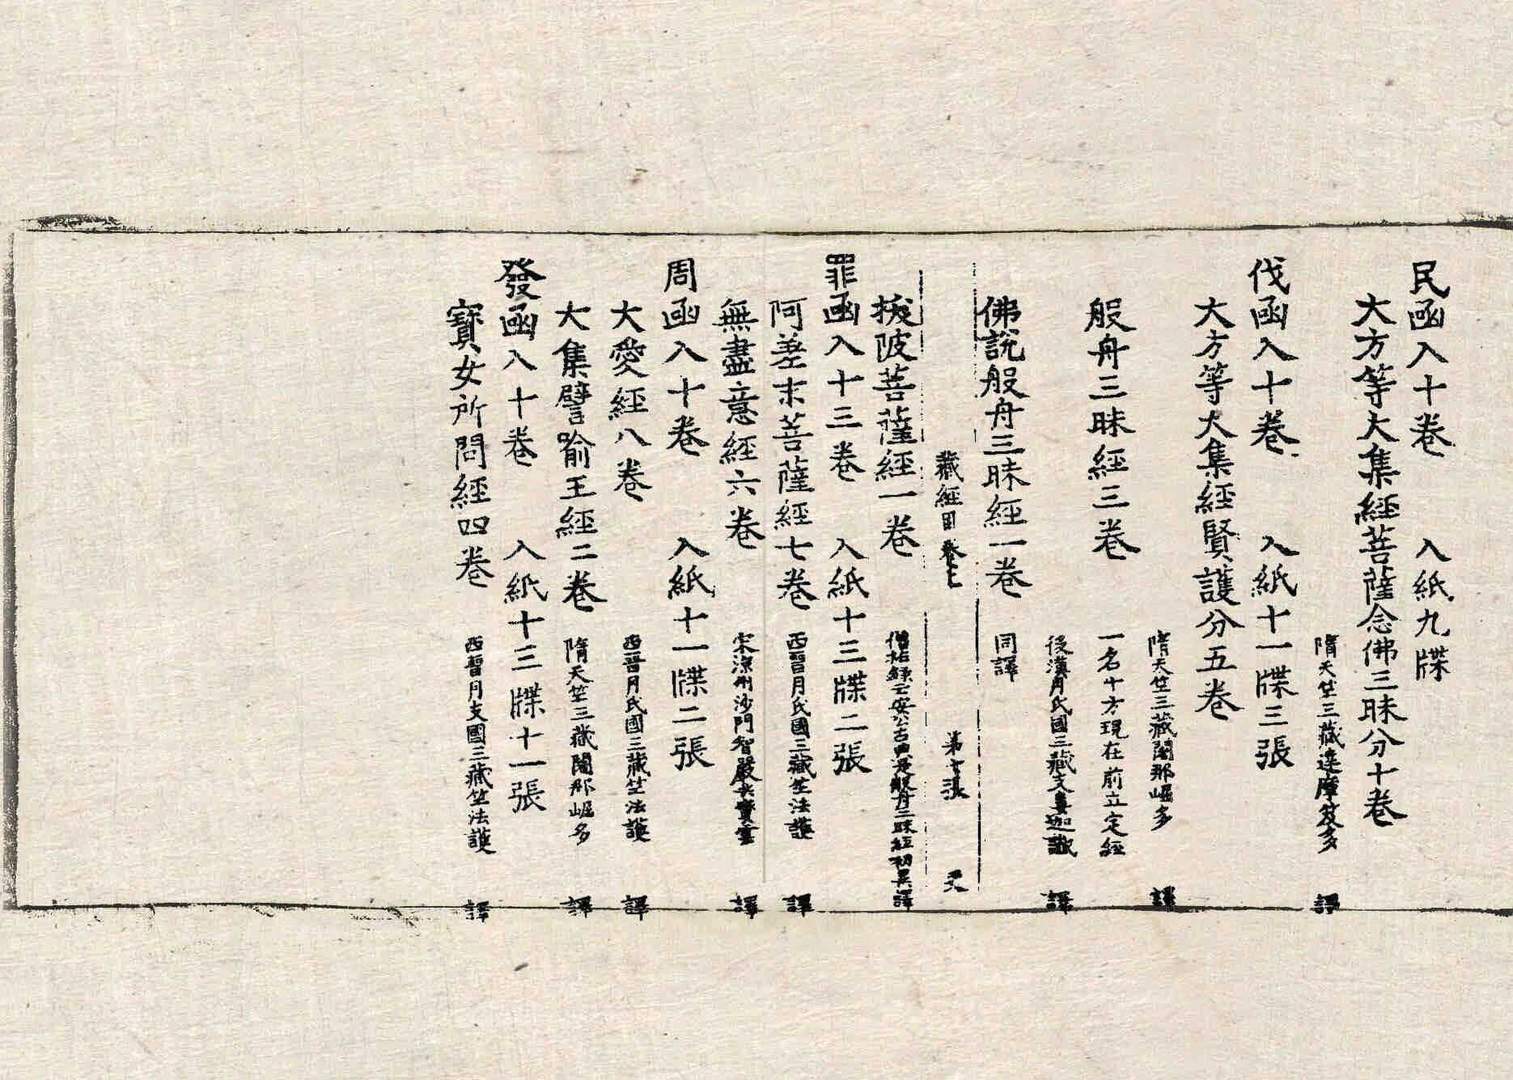 民函入十卷　入紙九牒
大方等大集經菩薩念佛三昧分十卷　隋天竺三藏達摩笈多　譯
伐函入十卷　入紙十一牒三張
大方等大集經賢護分五卷　隋天竺三藏闍那崛多　譯
般舟三昧經三卷　一名十方現在前立定經　後漢月氏國三藏支婁迦讖　譯
佛說般舟三昧經一卷　同譯
藏經目　卷七　第七張
拔陂菩薩經一卷　僧祐錄云安公古典是般舟三昧經初異譯
罪函入十三卷　入紙十三牒二張
阿差末菩薩經七卷　西晉月氏國三藏竺法護　譯
無盡意經六卷　宋涼州沙門智嚴共寶雲　譯
周函入十卷　入紙十一牒二張
大愛經八卷　西晉月氏國三藏竺法護　譯
大集譬喻王經二卷　隋天竺三藏闍那崛多　譯
發函入十卷　入紙十三牒十一張
寶女所問經四卷　西晉月支國三藏竺法護　譯